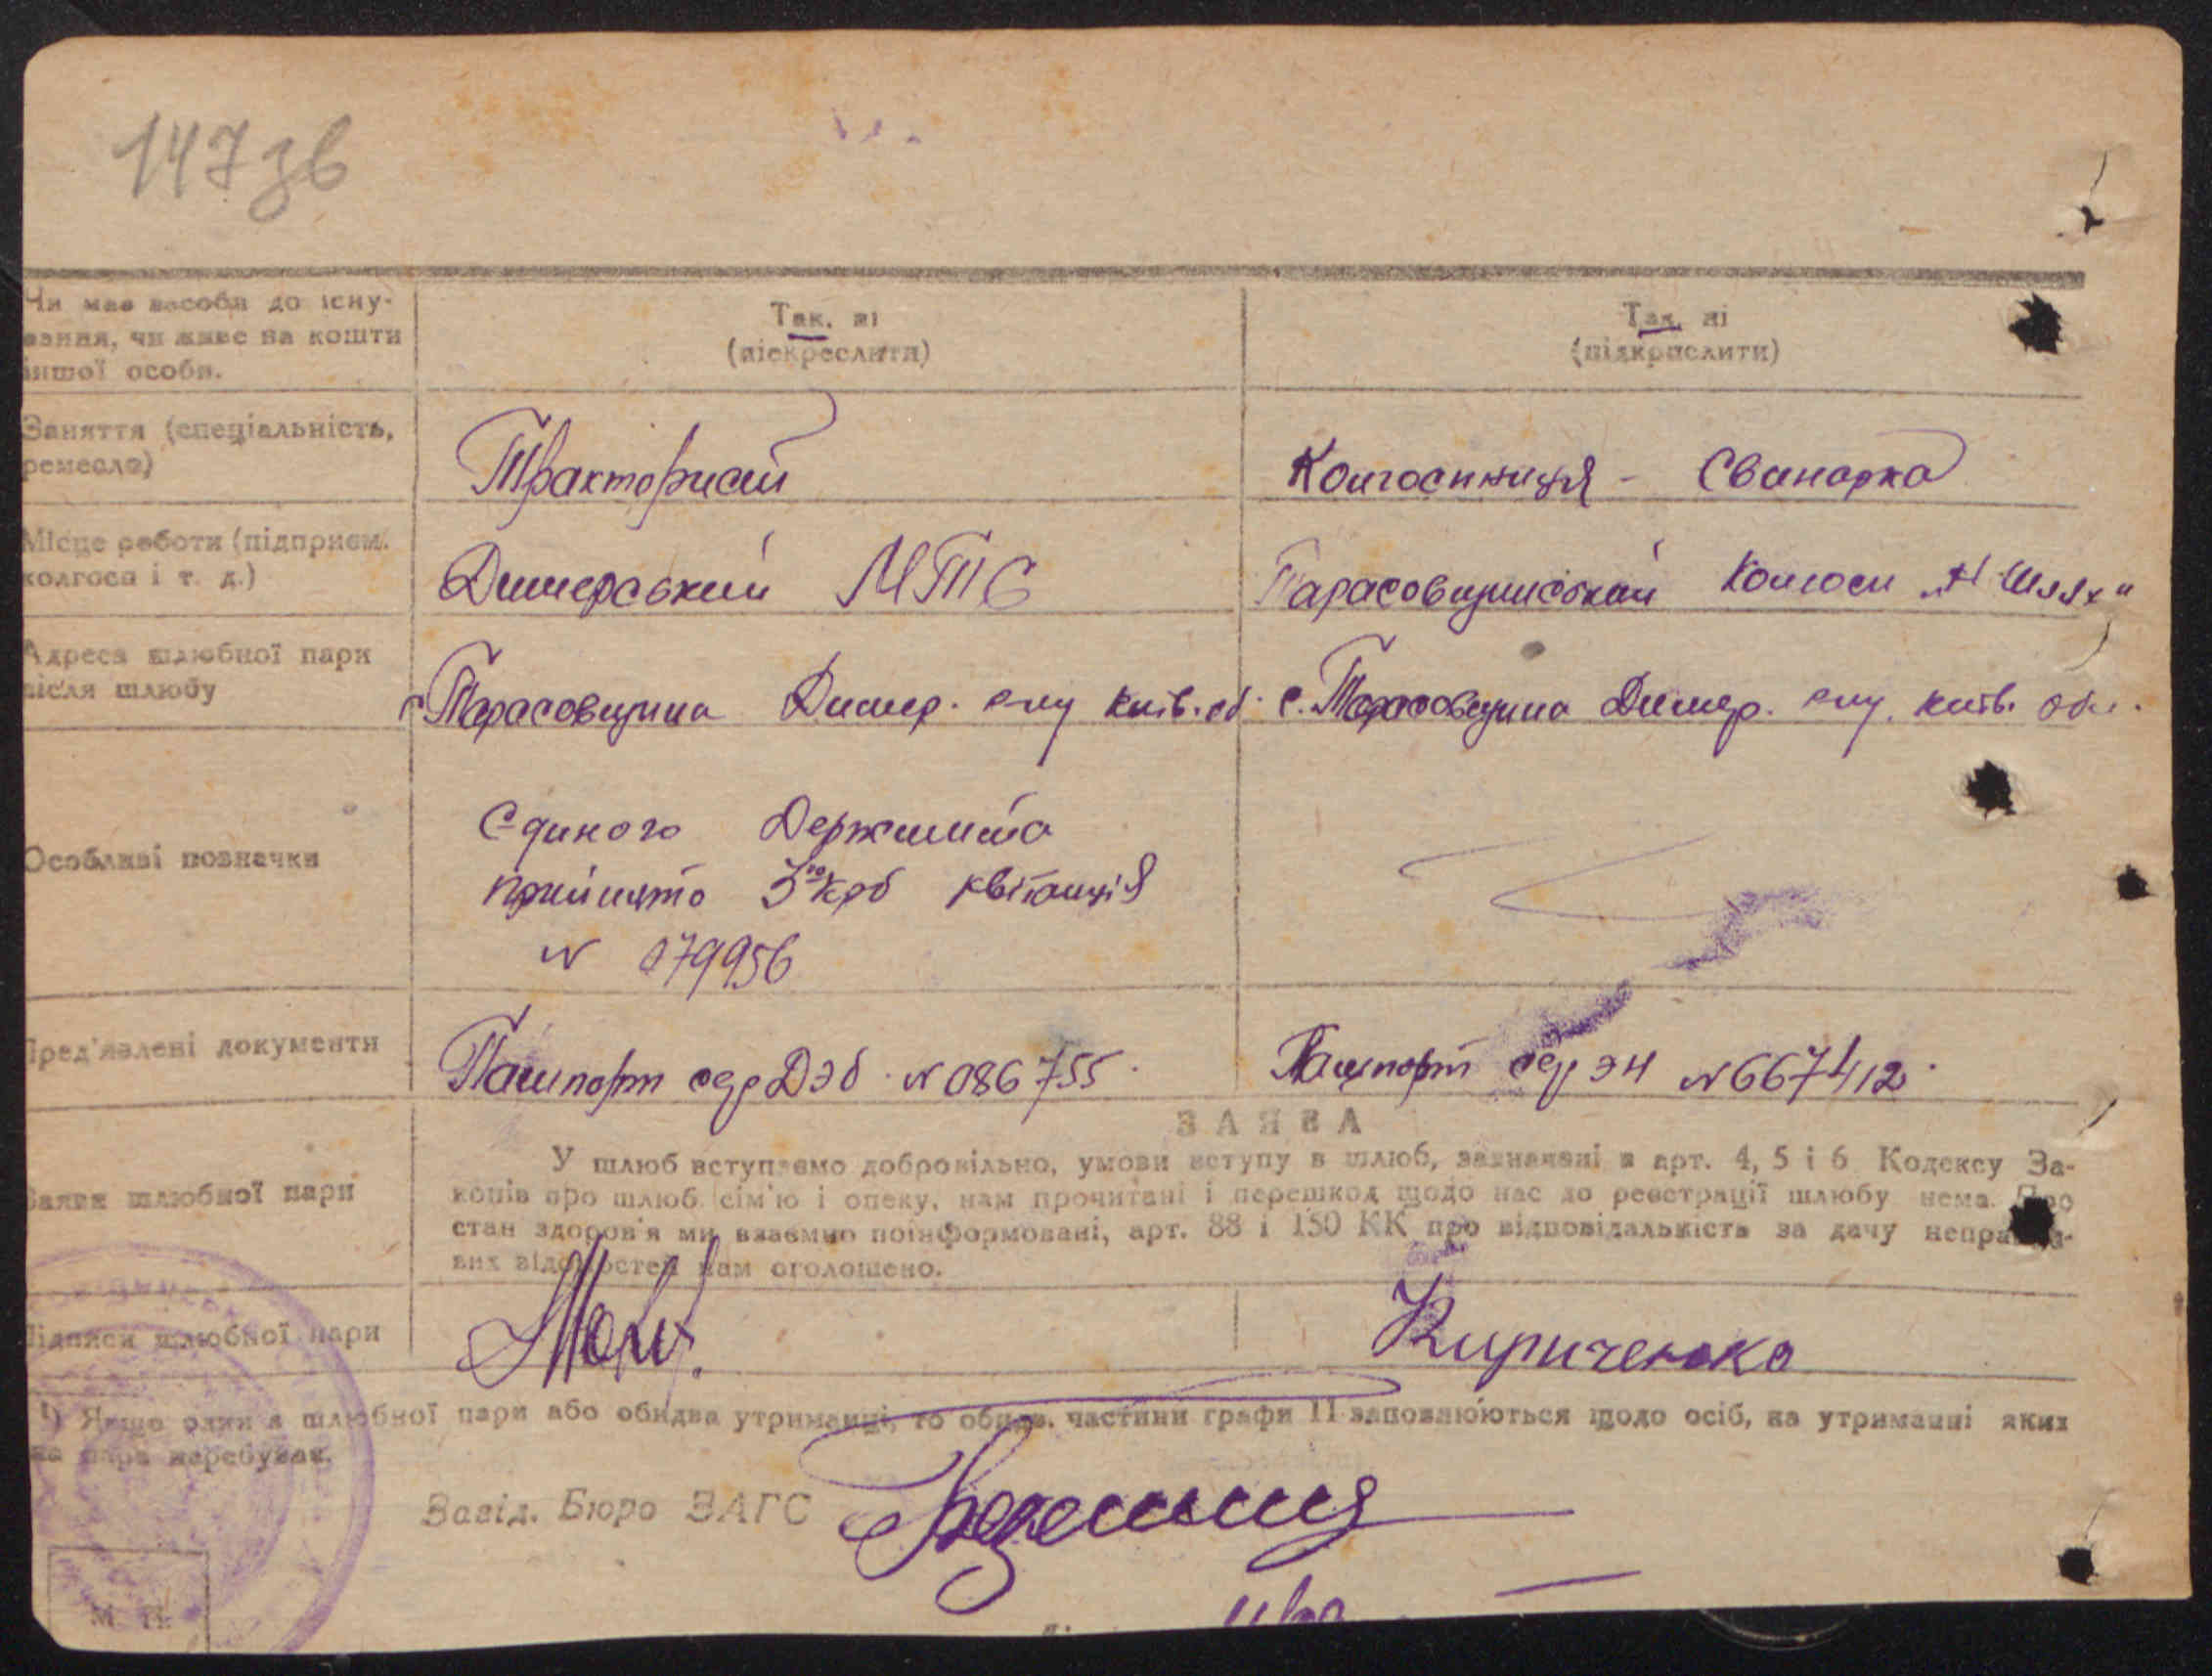 147 зв
Чи має засоби до існу-
вання, чи живе на кошти
іншої особи.
Так, ні
(піскреслити)
Так, ні
(підкрислити)
Заняття (спеціальність,
ремесло)
Тракторист
Колгоспниця - Свинарка
Місце роботи (підприєм.
колгосп і т. д.)
Димерський МТС
Тарасовщинський Колгосп „Н Шлях"
Адреса шлюбної пари
після шлюбу
с Тарасовщина Димер. р-ну Київ. об.
с. Тарасовщина Димер. р-ну. Київ. обл.
Особливі позначки
Єдиного Держмита
прийнято 3 крб квітанція
№ 079956
Пред'явлені документи
Пашпорт сер ДЭб № 086755.
Пашпорт сер ЭН № 667412.
ЗАЯВА
Заява шлюбної пари
У шлюб вступаємо добровільно, умови вступу в шлюб, зазначені в арт. 4, 5 і 6 Кодексу За-
конів про шлюб, сім'ю і опеку, нам прочитані і перешкод щодо нас до реєстрації шлюбу нема. Про
стан здоров'я ми взаємно поінформовані, арт. 88 і 150 КК про відповідальність за дачу неправди-
вих відомостей нам оголошено.
Підписи шлюбної пари
Кириченко
¹) Якщо один з шлюбної пари або обидва утриманці, то обидв. частини графи 11 заповнюються щодо осіб, на утриманні яких
ця пара перебуває.
Завід. Бюро ЗАГС
М П